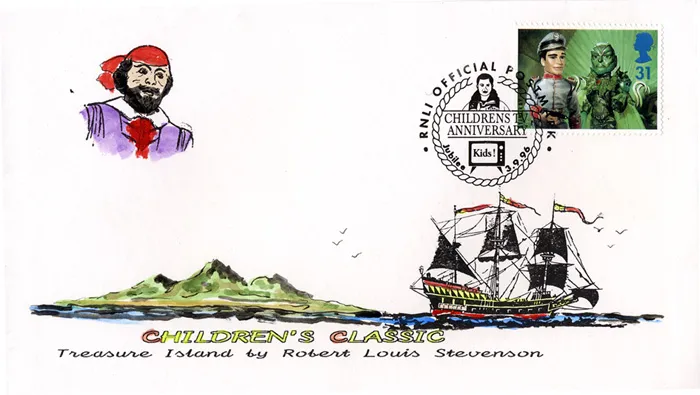 RNLI OFFICIAL POSTMARK
CHILDRENS TV
ANNIVERSARY
Kids!
Jubilee 3.9.96
31
CHILDREN'S CLASSIC
Treasure Island by Robert Louis Stevenson